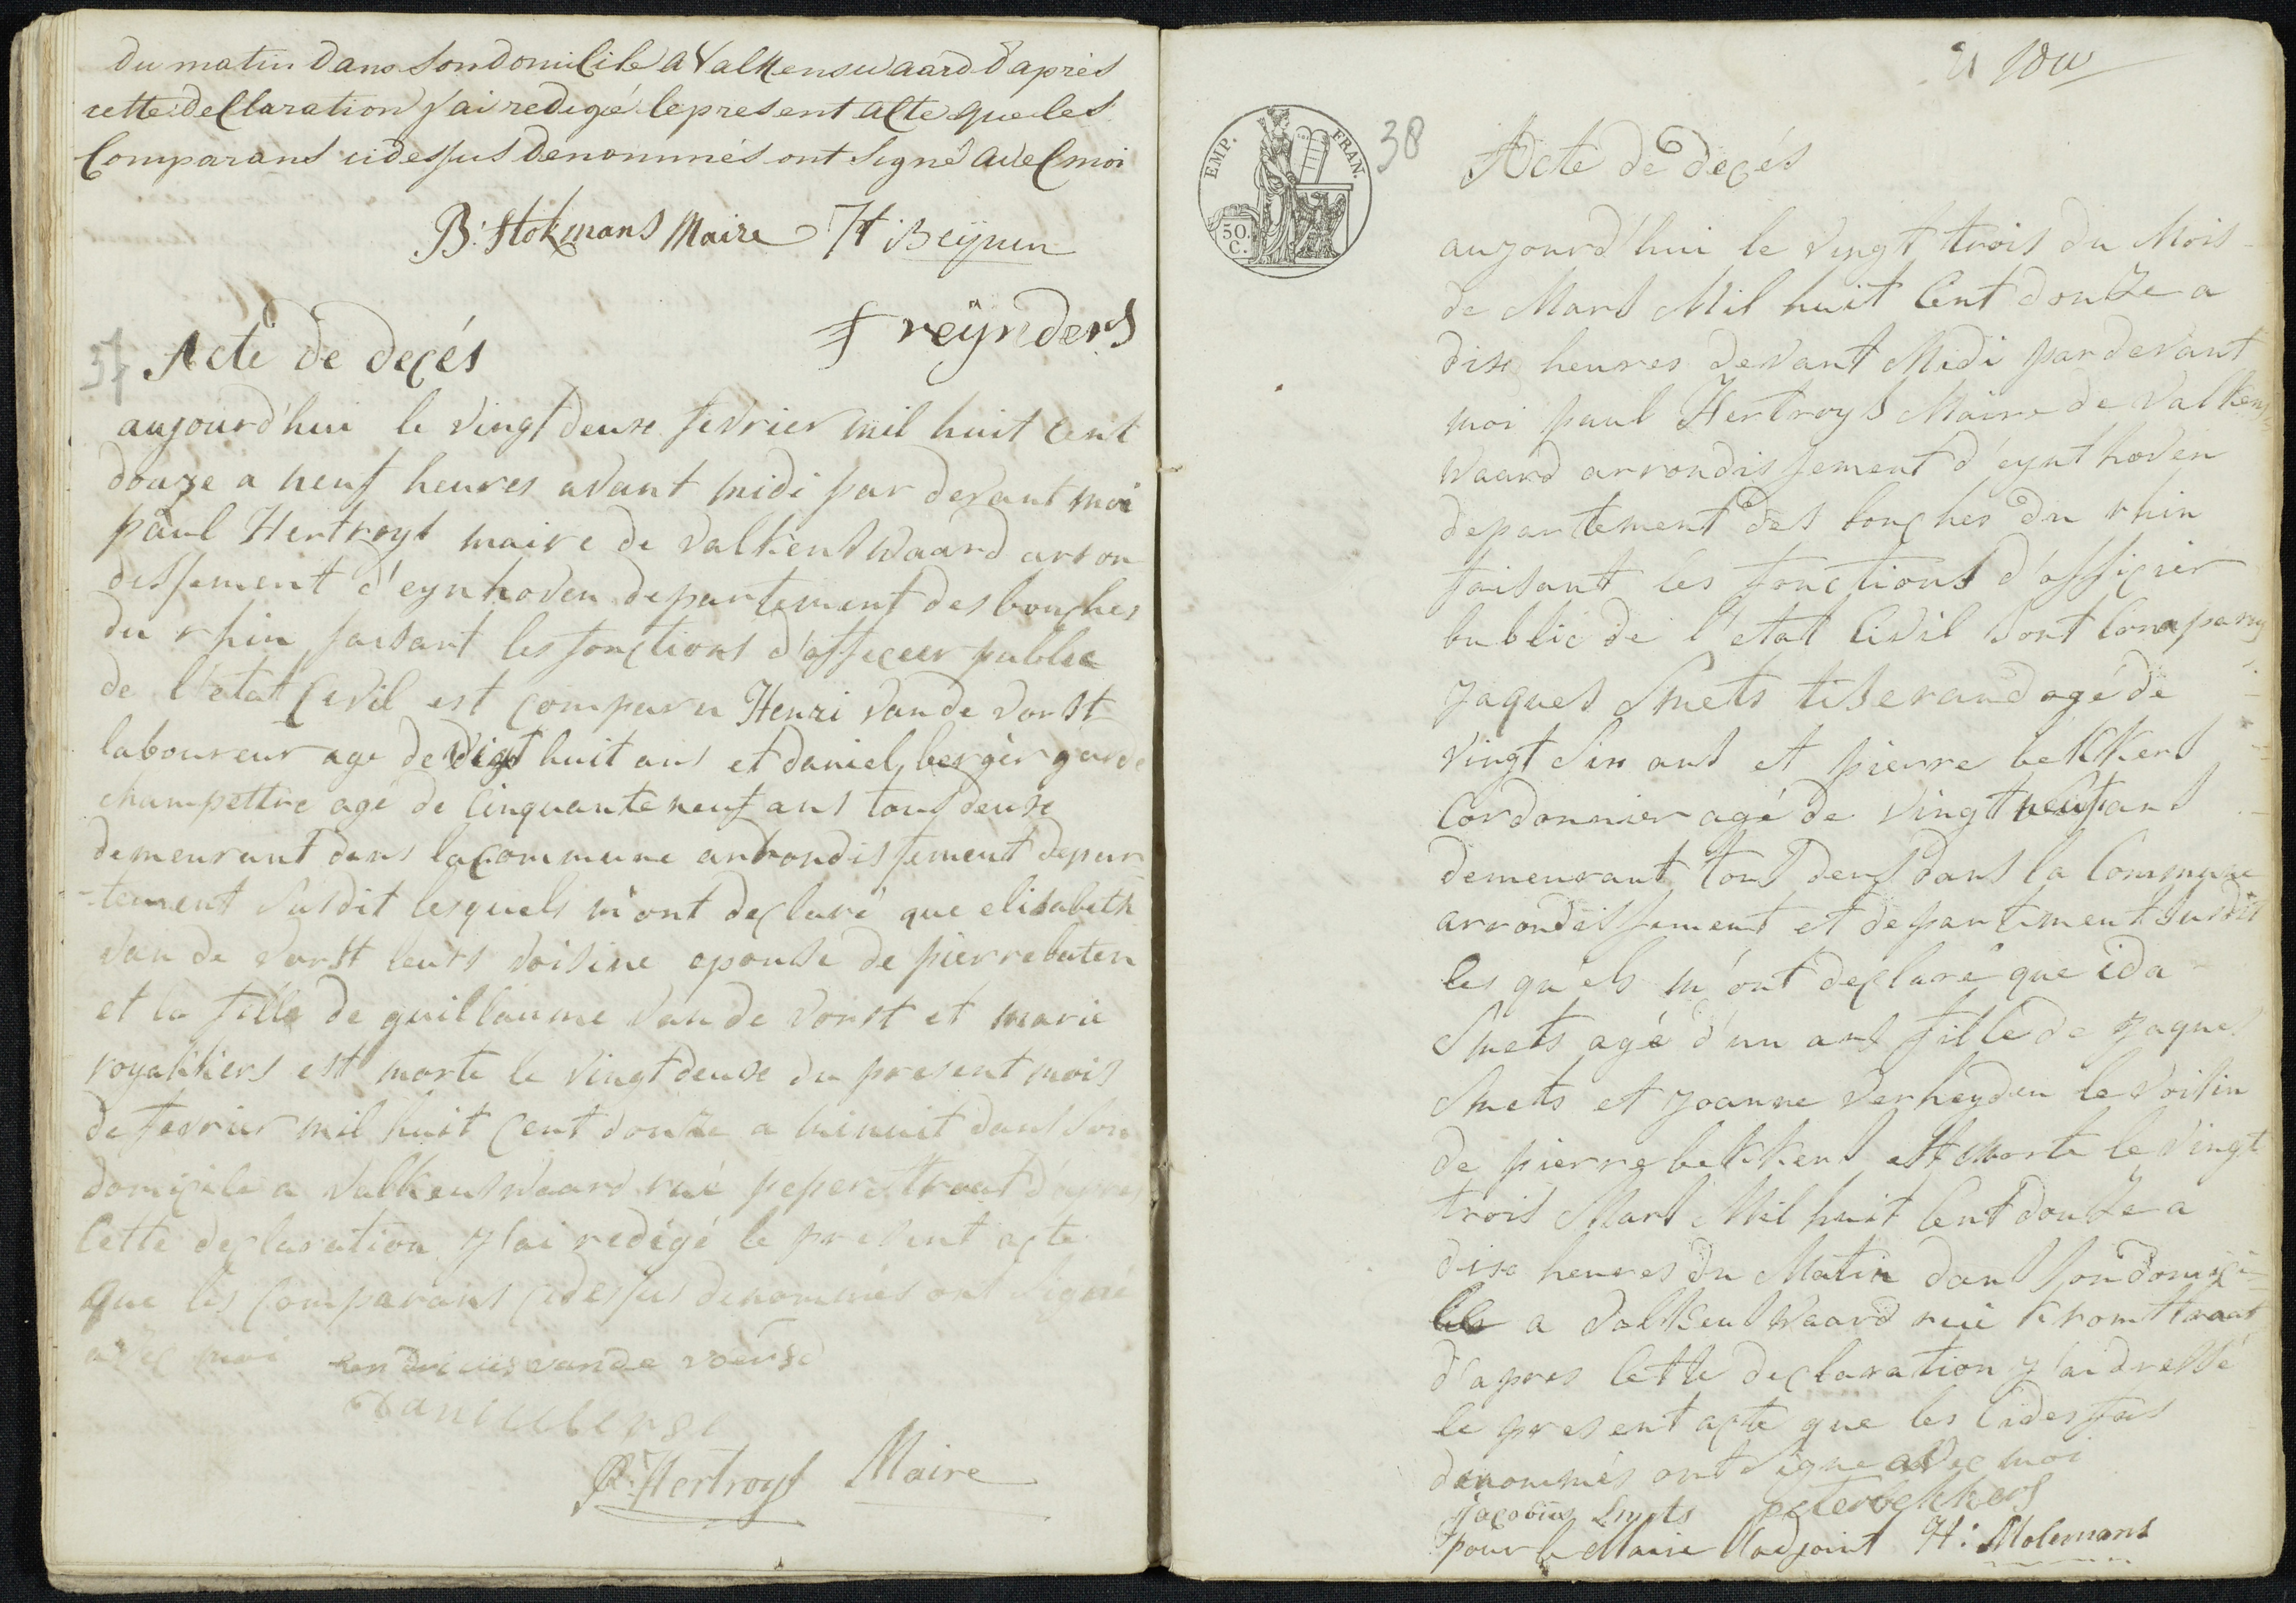 du matin dans son domicile a Valkenswaard d'après
cette declaration j'ai redigé le present acte que les
Comparans cidessus denommés ont signé avec moi
B: Stokmans Maire H Beijnen
F reijnders
37 Acte de decés
aujourd'hui le vingt deux fevrier mil huit cent
douze a neuf heures avant midi par devant moi
paul Hertroys maire de valkenswaard arron
dissement d'eynhoven departement des bouches
du rhin faisant les fonctions d'officier public
de l'etat Civil est comparu Henri van de vorst
laboureur age de vigt huit ans et daniel berger garde
champettre agé de cinquante neuf ans tous deux
demeurant dans la commune arrondissement depar
-tement susdit lesquels m'ont declaré que elisabeth
van de vorst leurs voisine epouse de pierre baten
et la fille de guillaume van de vorst et marie
royakkers est morte le vingt deux du present mois
de fevrier mil huit cent douze a minuit dans son
domicile a valkenswaard rué peperstraat d'apres
cette declaration j'ai redigé le present acte
que les comparans cidessus denommés ont signé
avec moi hendricus vande voerst
P: Hertroys Maire
21
EMP. FRAN.
50. C.
38
Acte de decés
aujourd'hui le vingt trois du Mois
de Mars Mil huit Cent douze a
dix heures devant Midi pardevant
moi paul Hertroys Maire de Valkens
waard arrondissement d'eynthoven
departement des bouches du rhin
faisant les fonctions d'officier
bublic de l'etat Civil sont Comparus
jaques Smets tiserand agé de
vingt six ans et pierre bekkers
Cordonnier agé de vingt neuf ans
demeurant tous deus dans la Commune
arrondissement et departement susdit
les quels m'ont declaré que ida
Smets agé d'un ans fille de jaques
Smets et joanne verheyden le voisin
de pierre bekkens est morte le vingt
trois Mars Mil huit Cent douze a
dix heures du Matin dans son domici
lle a valkenswaard rué kromstraat
d'apres cette declaration j'ai dressé
le present acte que les Cidessus
denommés ont signe avec moi
jacobus Smets peter bekkers
pour le Maire l'adjoint H: Molemans